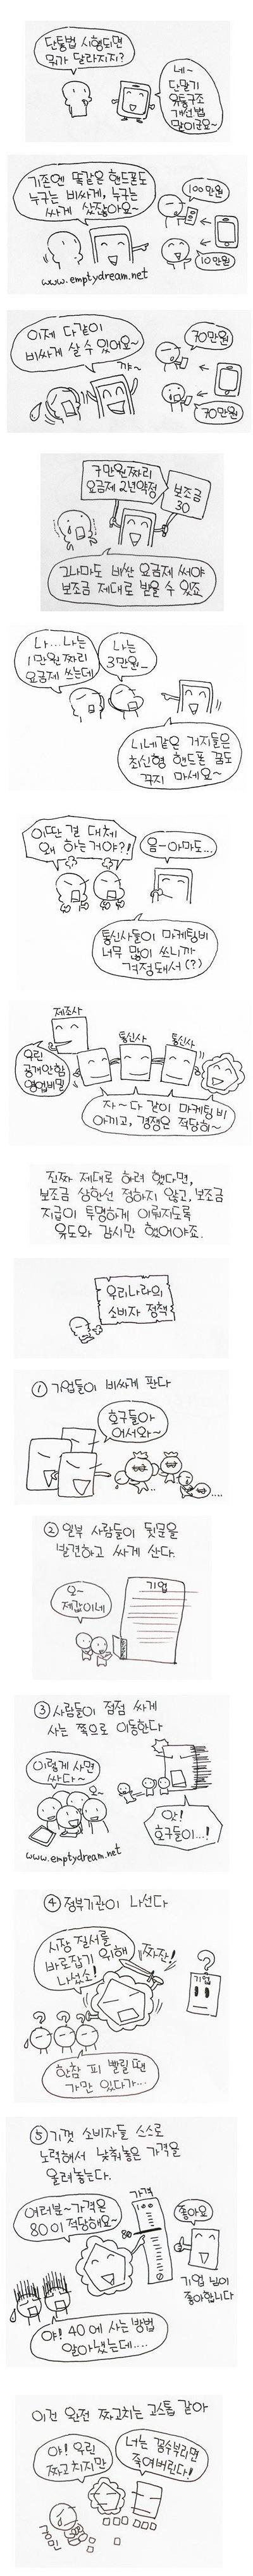 단통법 시행되면
뭐가 달라지지?
네~
단말기
유통구조
개선법
말이군요~
기존엔 똑같은 핸드폰도
누구는 비싸게, 누구는
싸게 샀잖아요~
100만원
10만원
www.emptydream.net
이제 다같이
비싸게 살 수 있어요~
꺄~
70만원
70만원
7만원짜리
요금제 2년약정
보조금
30
그나마도 비싼 요금제 써야
보조금 제대로 받을 수 있죠
나...나는
1만원 짜리
요금제 쓰는데
나는
3만원_
니네같은 거지들은
최신형 핸드폰 꿈도
꾸지 마세요~
이딴 걸 대체
왜 하는거야?!
음-아마도...
통신사들이 마케팅비
너무 많이 쓰니까
걱정돼서(?)
제조사
우린
공개안함
영업비밀
통신사
통신사
자~다 같이 마케팅비
아끼고, 경쟁은 적당히~
진짜 제대로 하려 했다면,
보조금 상한선 정하지 않고, 보조금
지급이 투명하게 이뤄지도록
유도와 감시만 했어야죠.
우리나라의
소비자 정책
① 기업들이 비싸게 판다
호구들아
어서와~
② 일부 사람들이 뒷문을
발견하고 싸게 산다.
오~
제값이네
기업
③ 사람들이 점점 싸게
사는 쪽으로 이동한다
이렇게 사면
싸다~
오~
앗!
호구들이...!
www.emptydream.net
④ 정부기관이 나선다
시장 질서를
바로잡기 위해
나섰소!
짜잔!
?
기업
? ? ?
한참 피 빨릴 땐
가만 있다가...
⑤ 기껏 소비자들 스스로
노력해서 낮춰놓은 가격을
올려놓는다.
여러분~가격은
80이 적당해요~
가격
100
80
0
좋아요
기업 님이
좋아합니다
야! 40에 사는 방법
알아냈는데....
이건 완전 짜고치는 고스톱 같아
아! 우린
짜고 치지만
너는 꼼수부리면
죽여버린다!
국민